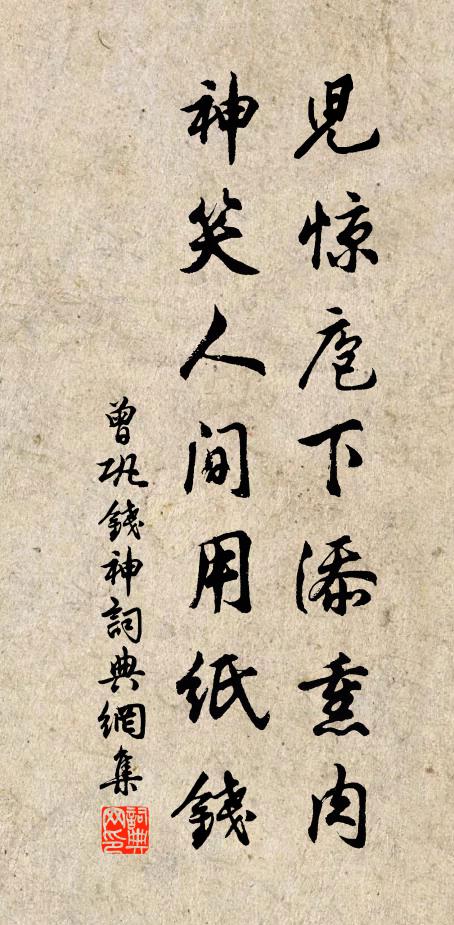 児惊庖下添熏肉
神笑人间用纸錢
曾巩錢神詞典網集
詞典網印